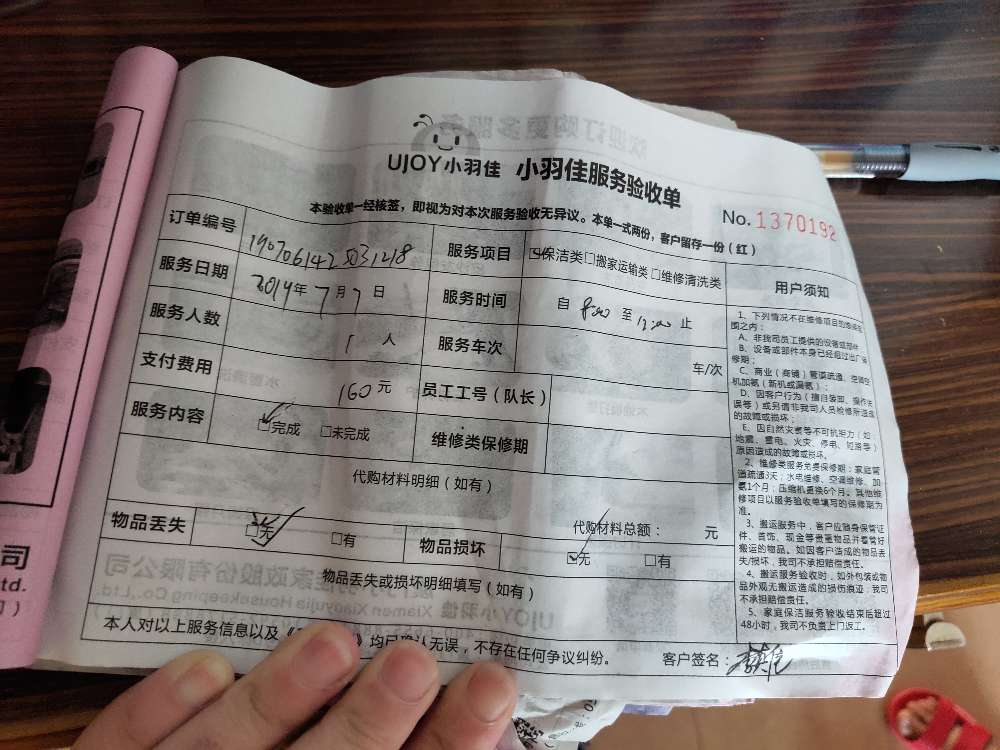 UJOY小羽佳 小羽佳服务验收单
No.1370192
本验收单一经核签，即视为对本次服务验收无异议。本单一式两份，客户留存一份（红）
订单编号 1907061425031218 服务项目 保洁类□搬家运输类□维修清洗类
服务日期 2019年7月7日 服务时间 自 8:00 至 12:00 止
服务人数 1 人 服务车次 车/次
支付费用 160元 员工工号（队长）
服务内容 □完成 □未完成 维修类保修期
代购材料明细（如有）
代购材料总额： 元
物品丢失 □无 □有 物品损坏 □无 □有
物品丢失或损坏明细填写（如有）
本人对以上服务信息以及《 》均已确认无误，不存在任何争议纠纷。 客户签名：
用户须知
1、下列情况不在维修项目的维修范
围之内：
A、非我司员工提供的设备或部件
B、设备或部件本身已经超过出厂
修期；
C、商业（商铺）管道疏通、空调
机加氨（新机或漏氨）；
D、因客户行为（擅自装卸、操作
误等）或另请非我司人员检修所造成
的故障或损坏；
E、因自然灾害等不可抗拒力（如
地震、雷电、火灾、停电、短路等）
原因造成的故障或损坏。
2、维修类服务免费保修期：家庭管
道疏通3天；水电维修、空调维修、加
氨1个月；压缩机更换6个月。其他维
修项目以服务验收单填写的保修期为
准。
3、搬运服务中，客户应随身保管证
件、首饰、现金等贵重物品并看管好
搬运的物品。如因客户造成的物品丢
失/损坏，我司不承担赔偿责任。
4、搬运服务验收时，如外包装或物
品外观无搬运造成的损伤痕迹，我司
不承担赔偿责任。
5、家庭保洁服务验收结束后超过
48小时，我司不负责上门返工。
司
td.